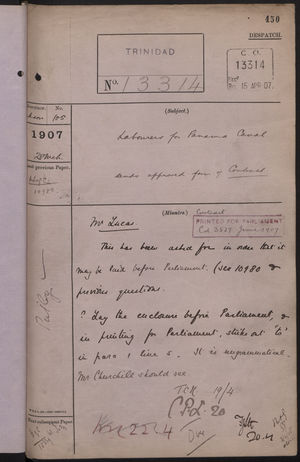 450
DESPATCH.
TRINIDAD
No. 13314
C. O.
13314
REC
15 APR 07
No.
105
1907
(Subject.)
Labourers for Panama Canal
sends approved form of Contract
last previous Paper.
10980
(Minutes.)
Contract
PRINTED FOR PARLIAMENT
June 1907
Mr Lucas
This has been asked for in order that it
may be laid before Parliament. (see 10980 &
previous questions.
? Lay the enclosure before Parliament, &
in printing for Parliament, strike out "to"
in para 1 line 5. It is ungrammatical.
Mr Churchill should see
19/4
20.4
next subsequent Paper.